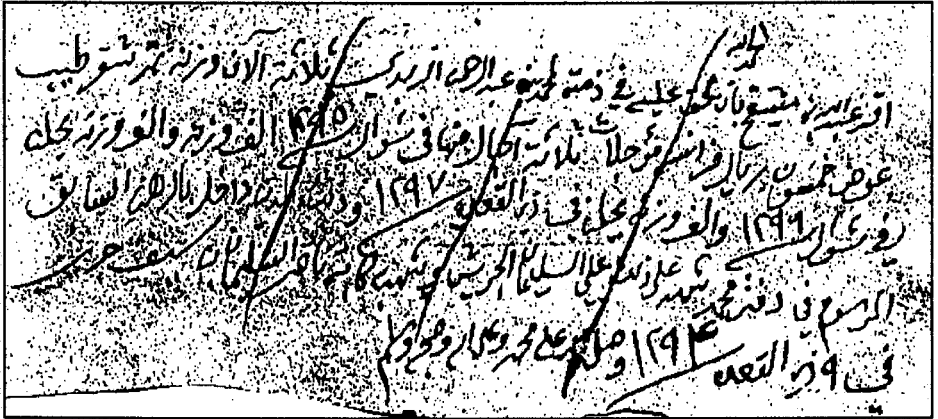 الحمد لله
اقر عبدالله بن مقيبيح بان عليه في ذمته لمحمد بن عبدالرحمن الربدي ثلاثة آلاف وزنة تمر شقر طيب
عوض خمسون ريال فرانسه مؤجلات ثلاثة آجال منها في شوال ١٢٩٥ الف وزنه والف وزنه يحلن
في شوال ١٢٩٦ والف وزنه يحلن في ذي القعدة ١٢٩٧ وذلك داخل بالرهن السابق
المرسوم في دفتر محمد شهد على ذلك علي السليمان وشهد به كاتبه ناصر السليمان بن سيف حرر
في ٩ ذي القعدة ١٢٩٤ وصلى الله على محمد وعلى آله وصحبه وسلم